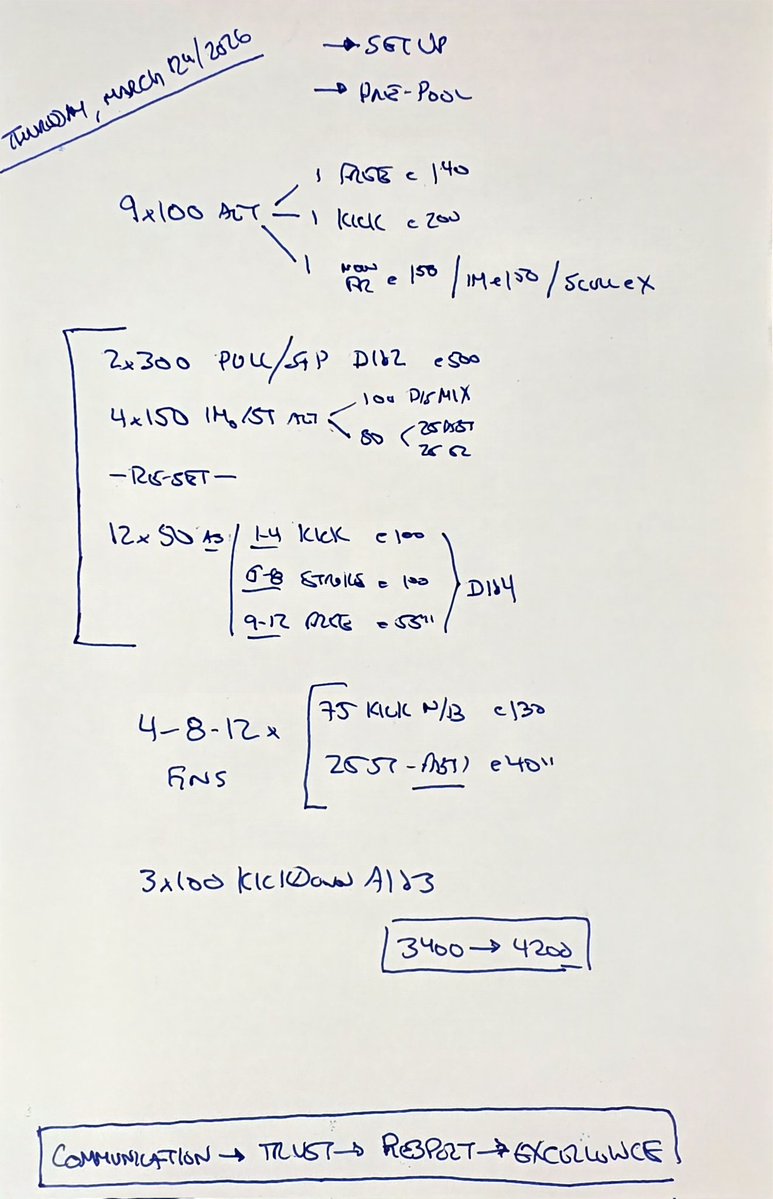 THURSDAY, MARCH 12th/2026
→ SET UP
→ PRE-POOL
9x100 ALT
1 FREE @ 140
1 KICK @ 200
1 NON FR @ 150 / IM @ 150 / SCULL @ X
2x300 PULL/ D1&2 @ 500
4x150 IMo/ST ALT
100 D/S MIX
50
25 FAST
25 EZ
- RE-SET -
12 x 50 AS
1-4 KICK @ 100
5-8 STROKE @ 100
9-12 FREE @ 55"
D1&4
4-8-12 x
FINS
75 KICK N/B @ 130
25 ST - FAST @ 40"
3x100 KICKDOWN A1&3
3400 → 4200
COMMUNICATION → TRUST → RESPECT → EXCELLENCE